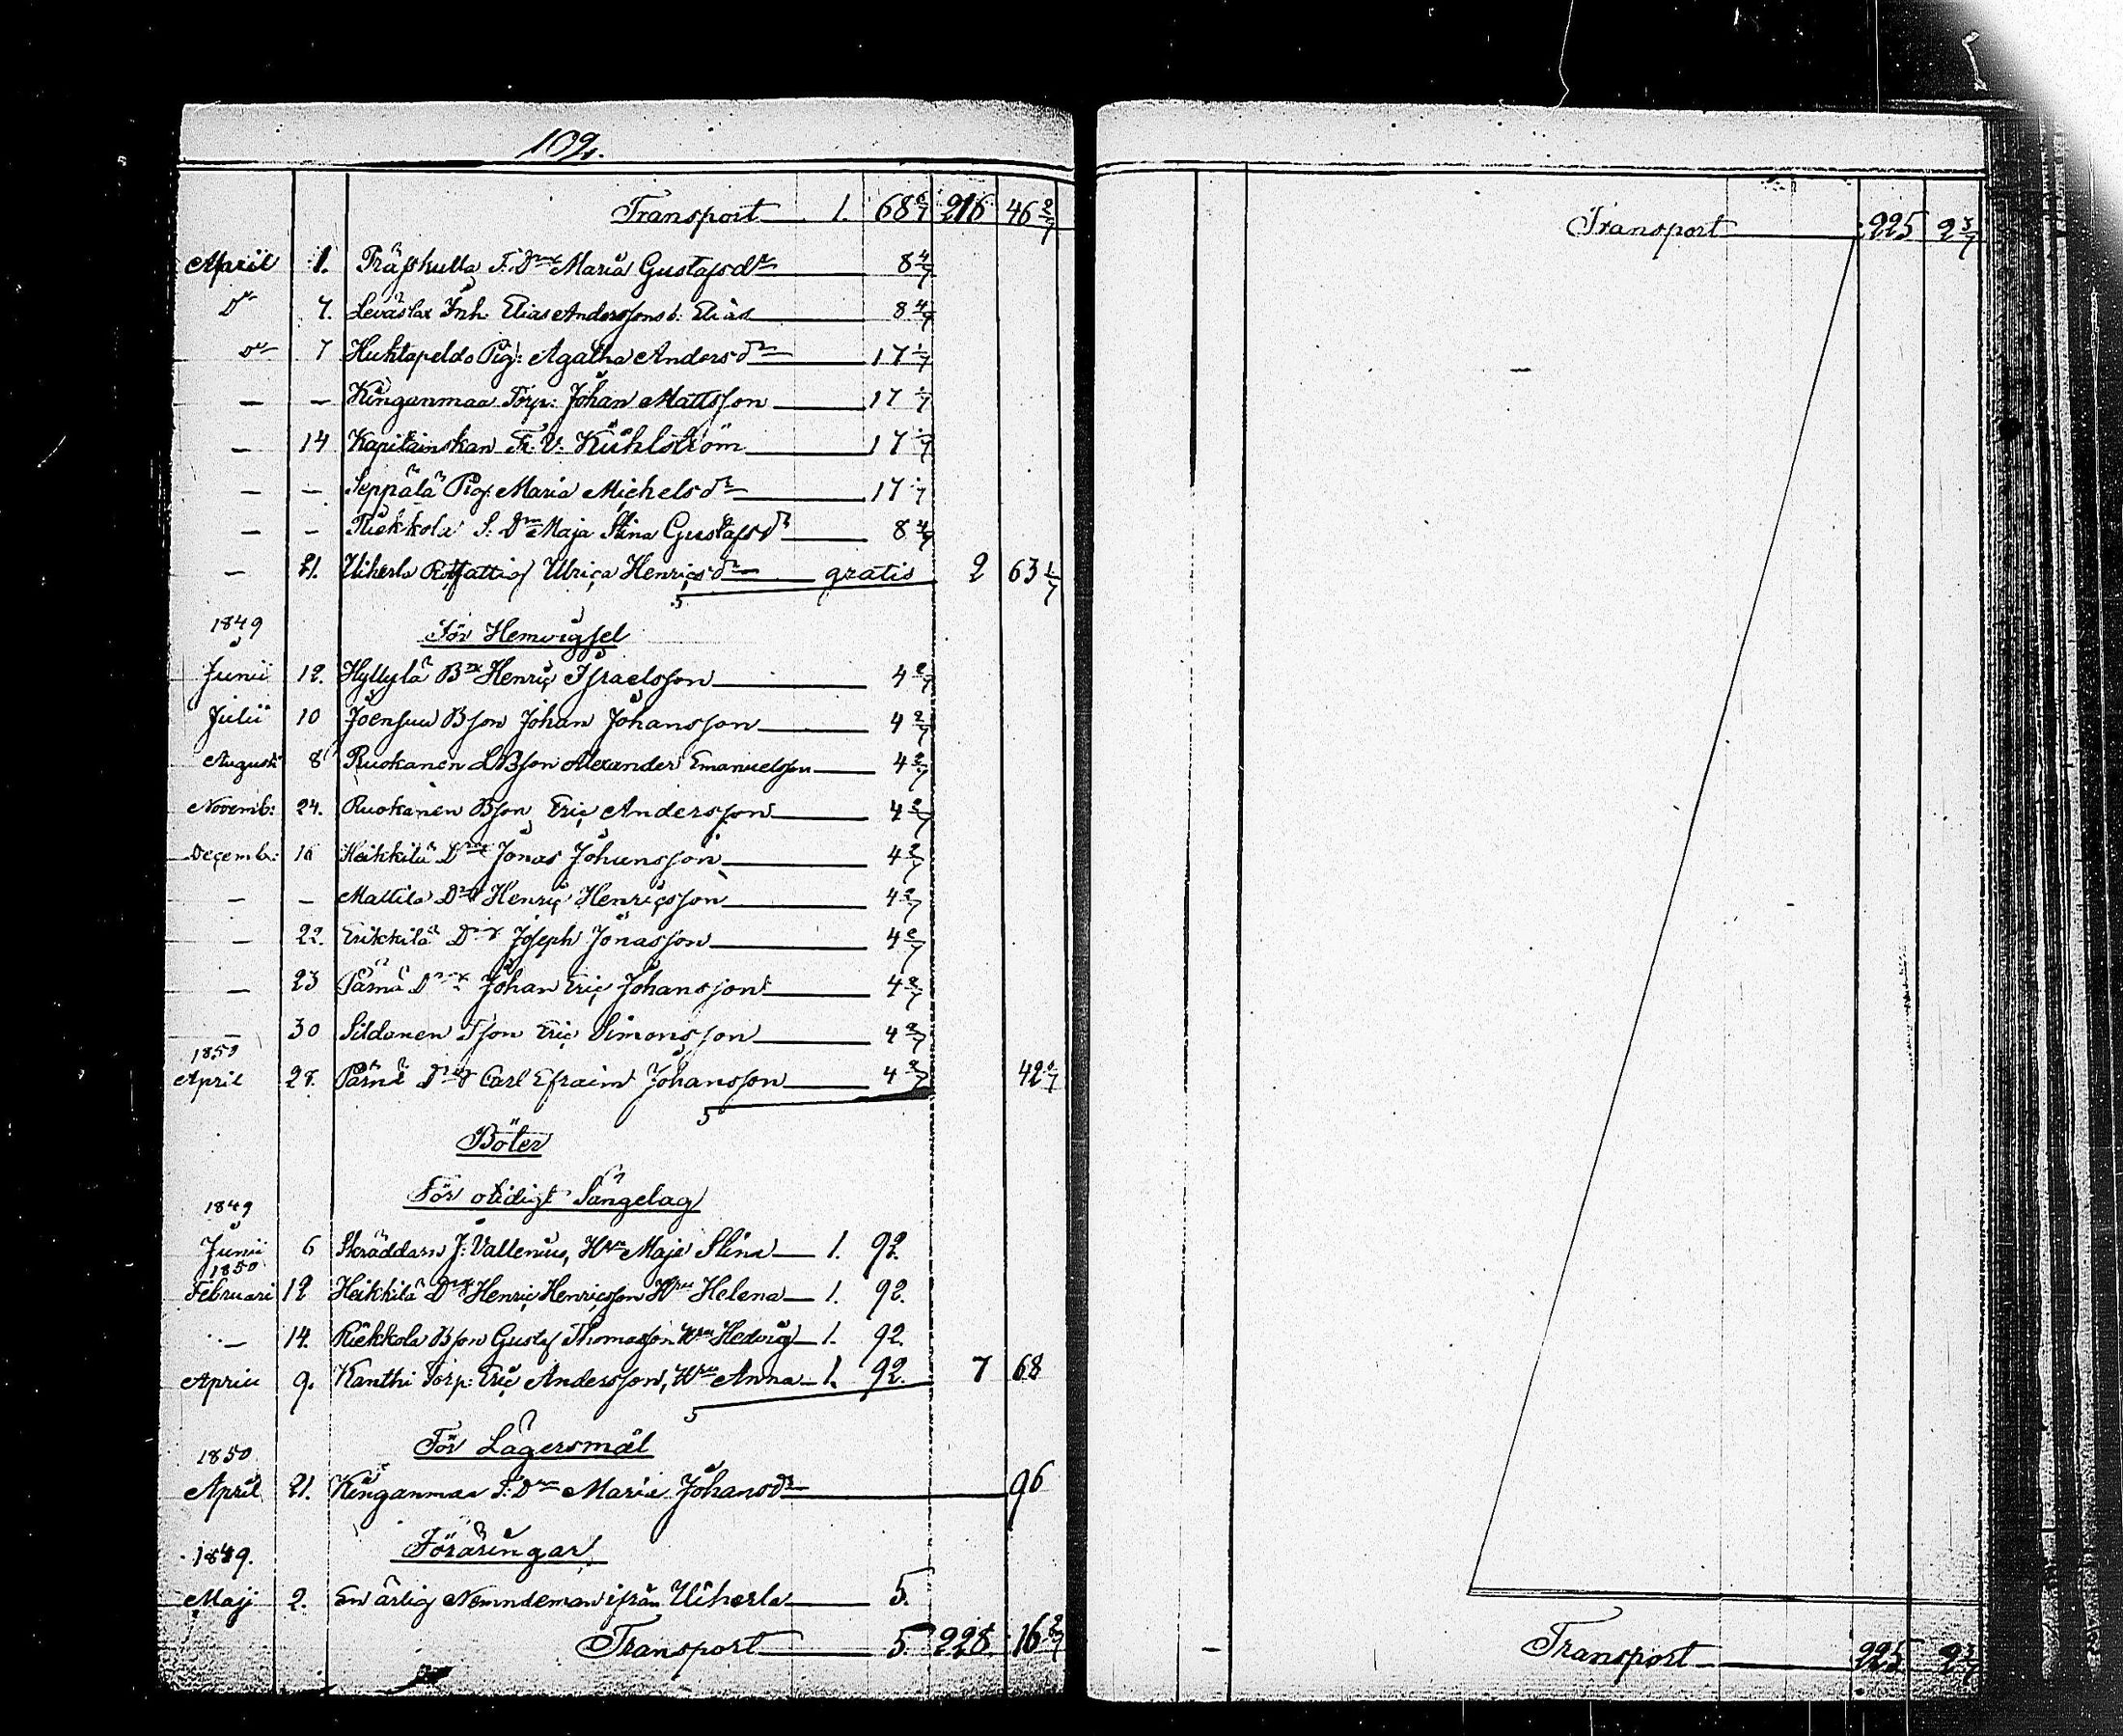 109.
Transport 1. 68 6/7 216 46 2/7
April 1. Träfskulla T: Dr Maria Gustafsdr 8 4/7
Do 7. Leväslax Inh. Elias Anderssons b. Elias 8 4/7
Do 7 Huhtapeldo Pig: Agatha Andersdr 17 1/7
— — Kinganmaa Torp: Johan Mattsson 17 1/7
— 14 Kapitainskan Fr. V. Kühlström 17 1/7
— — Seppälä Pig: Maria Michelsdr 17 1/7
— — Riekkola S: Dr Maja Stina Gustafsdr 8 4/7
— 21. Uiherla Ulrica Henricsdr gratis 2 63 1/7
1849
För Hemvigsel
Junii 12. Hyllylä Bde Henric Israelsson 4 2/7
Julii 10 Joensuu Bson Johan Johansson 4 2/7
Augusti 8 Ruokanen LBson Alexander Emanuelsson 4 2/7
Novemb: 24. Ruokanen Bson Eric Andersson 4 2/7
Decemb: 16 Heikkilä Dr Jonas Johansson 4 2/7
— — Mattila Dr Henric Henricsson 4 2/7
— 22. Erikkilä Dr Joseph Jonasson 4 2/7
— 23 Pärnä Dr Johan Eric Johansson 4 2/7
— 30 Sildanen Tson Eric Simonsson 4 2/7
1850
April 28. Pärnä Dr Carl Efraim Johansson 4 2/7 42 6/7
Böter
För otidigt Sängelag
1849
Junii 6 Skräddarn J: Vallenius, Hru Maja Stina 1. 92.
1850
Februari 12 Heikkilä Dr Henric Henricsson Hru Helena 1. 92.
— 14. Riekkola Bson Gustaf Thomasson Hru Hedvig 1. 92.
Aprill 9. Kanthi Torp: Eric Andersson, Hru Anna 1. 92. 7 68
För Lägersmål
1850
April 21. Kinganmaa T: Dr Maria Johansdr 96
Föräringar
1849.
Maji 2. En ärlig Nemndeman ifrån Uiherla 5.
Transport 5. 228. 16 2/7
Transport 225 2 3/7
Transport 225 2 3/7